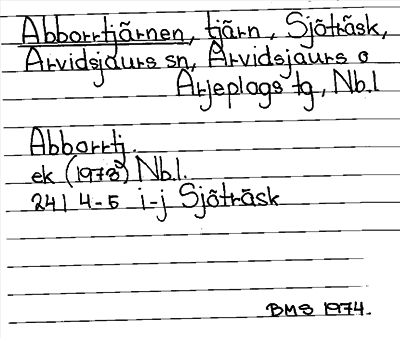 Abborrtjärnen, tjärn, Sjöträsk,
Arvidsjaurs sn, Arvidsjaurs o
Arjeplogs tg, Nb.l
Abborrtj.
ek (1973) Nb.l.
24I 4-5 i-j Sjöträsk
BMS 1974.